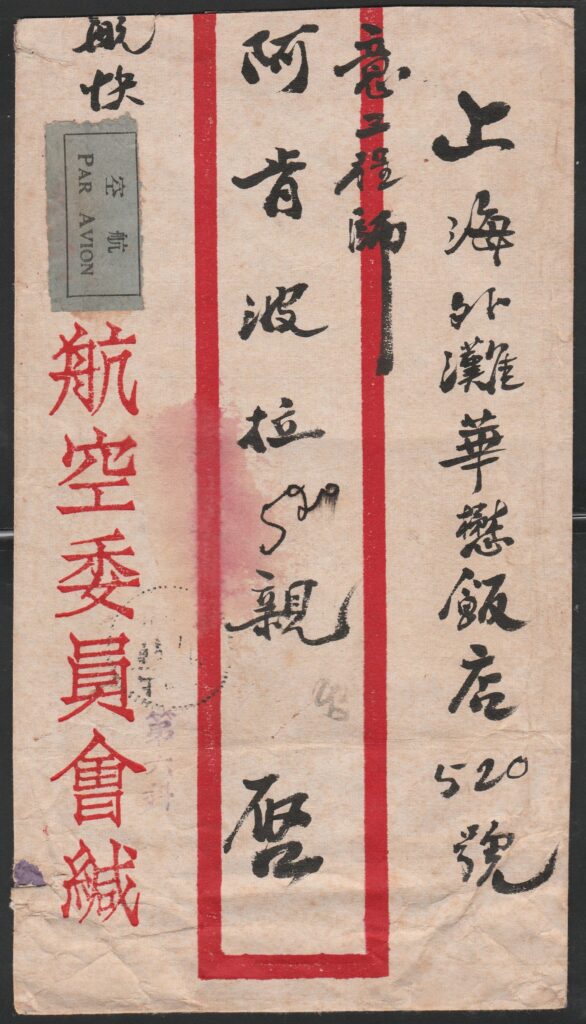 上海外灘華懋飯店520號
意工程師
阿肯波拉親启
航快
航空
PAR AVION
航空委員會緘